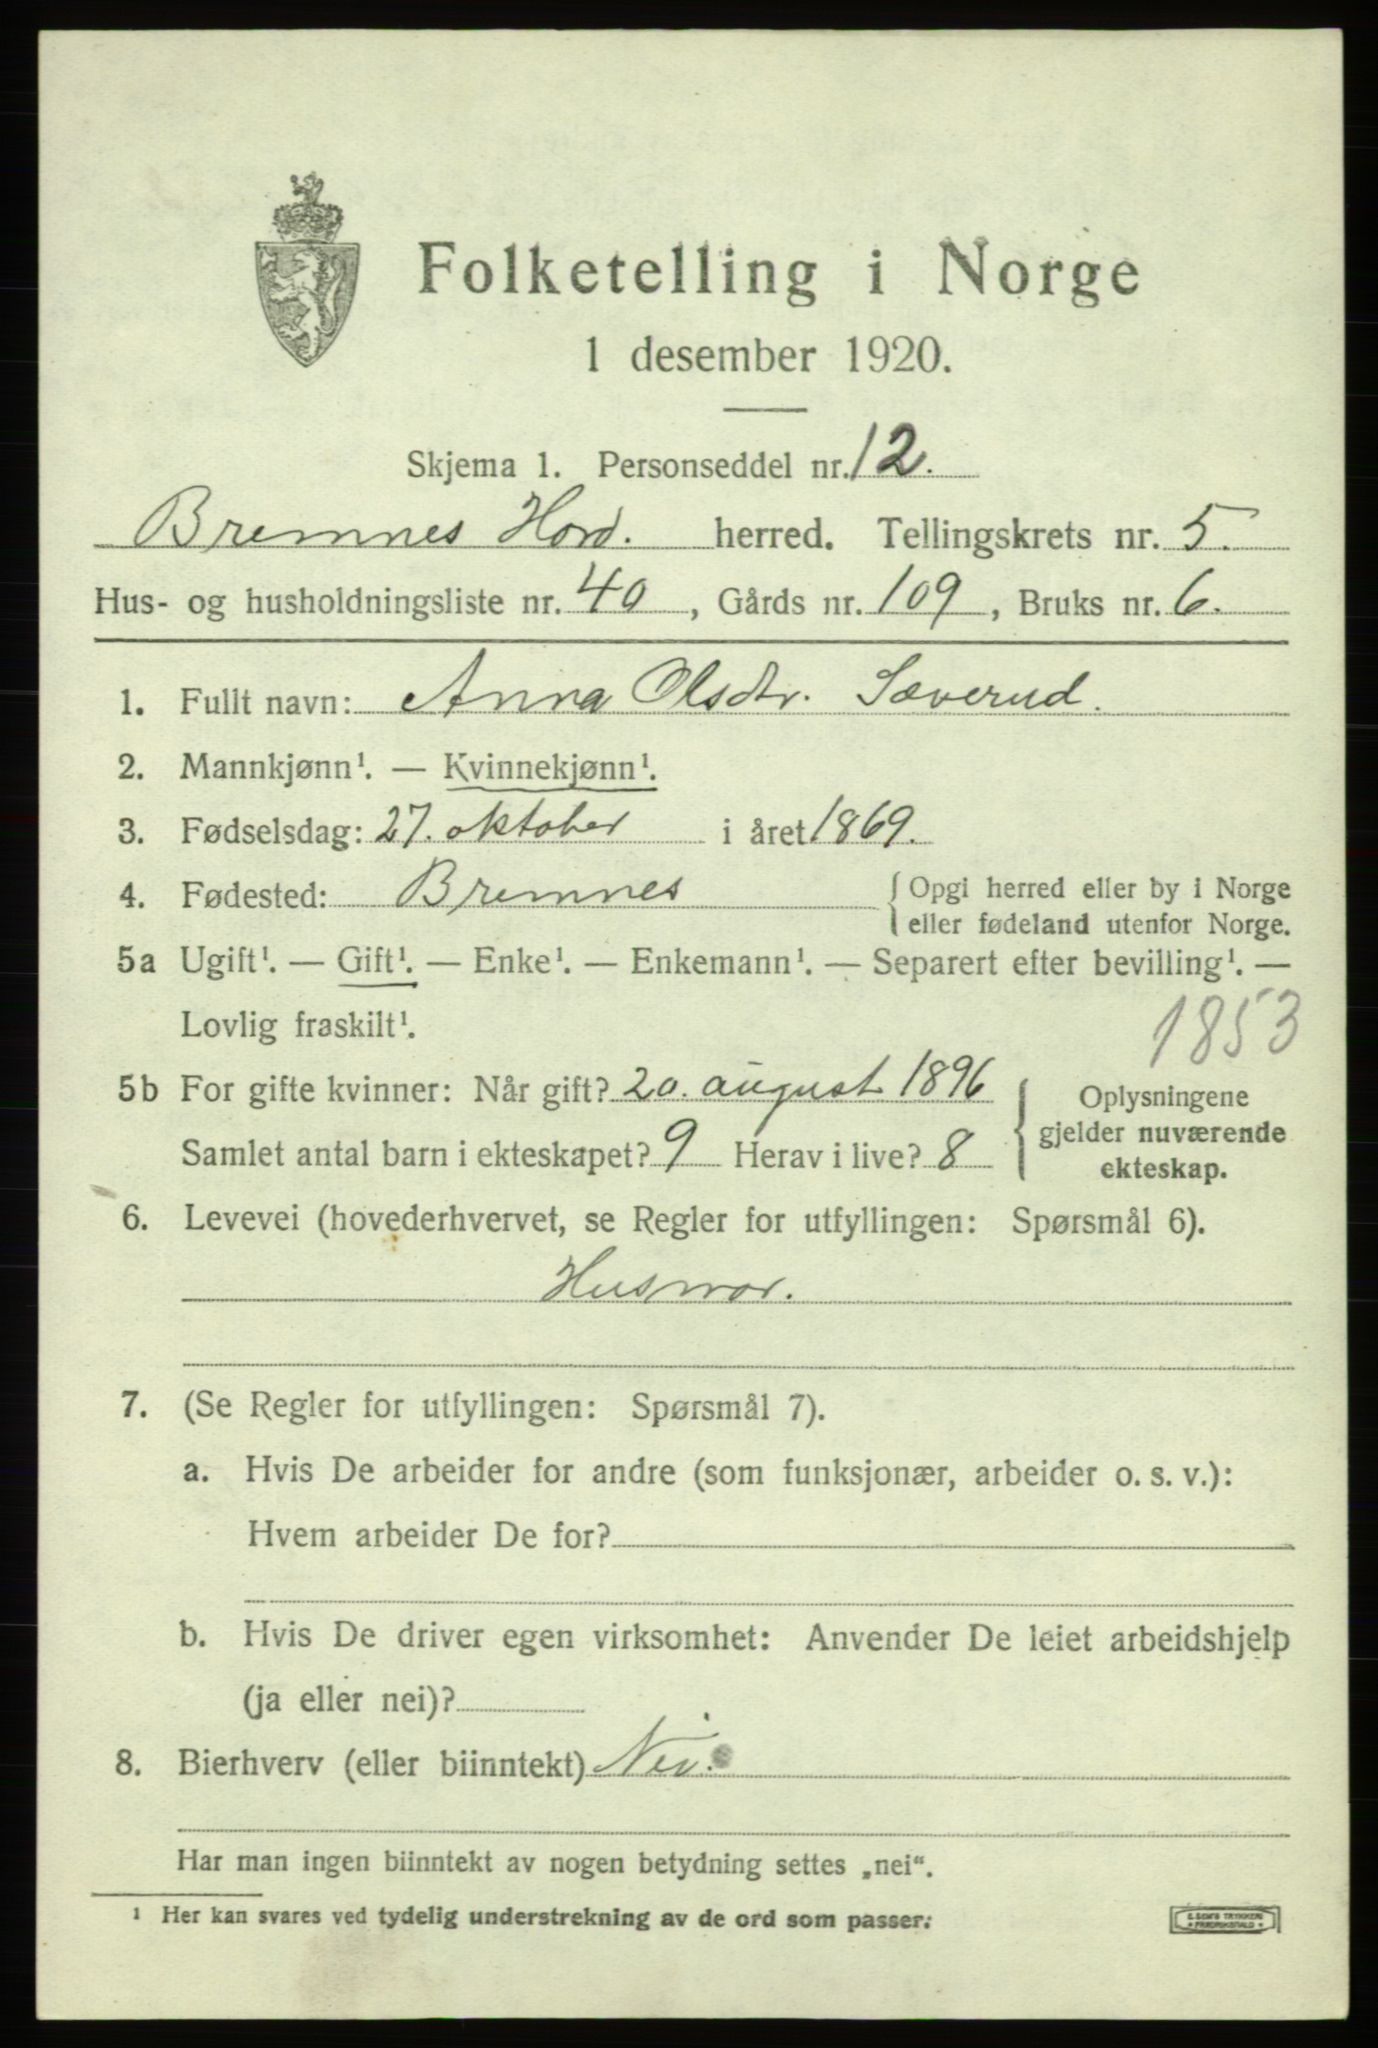 Folketelling i Norge
1 desember 1920.
Skjema 1. Personseddel nr. 12.
Bremnes Hord. herred. Tellingskrets nr. 5.
Hus- og husholdningsliste nr. 40, Gårds nr. 109, Bruks nr. 6.
1. Fullt navn: Anna Olsdtr. Sæverud.
2. Mannkjønn¹. — Kvinnekjønn¹.
3. Fødselsdag: 27. oktober i året 1869.
4. Fødested: Bremnes { Opgi herred eller by i Norge
eller fødeland utenfor Norge.
5a Ugift¹. — Gift¹. — Enke¹. — Enkemann¹. — Separert efter bevilling¹. —
Lovlig fraskilt¹.
1853
5b For gifte kvinner: Når gift? 20. august 1896
Samlet antal barn i ekteskapet? 9 Herav i live? 8
{ Oplysningene
gjelder nuværende
ekteskap.
6. Levevei (hovederhvervet, se Regler for utfyllingen: Spørsmål 6).
Husmor.
7. (Se Regler for utfyllingen: Spørsmål 7).
a. Hvis De arbeider for andre (som funksjonær, arbeider o. s. v.):
Hvem arbeider De for?
b. Hvis De driver egen virksomhet: Anvender De leiet arbeidshjelp
(ja eller nei)?
8. Bierhverv (eller biinntekt) Nei.
Har man ingen biinntekt av nogen betydning settes „nei“.
¹ Her kan svares ved tydelig understrekning av de ord som passer.